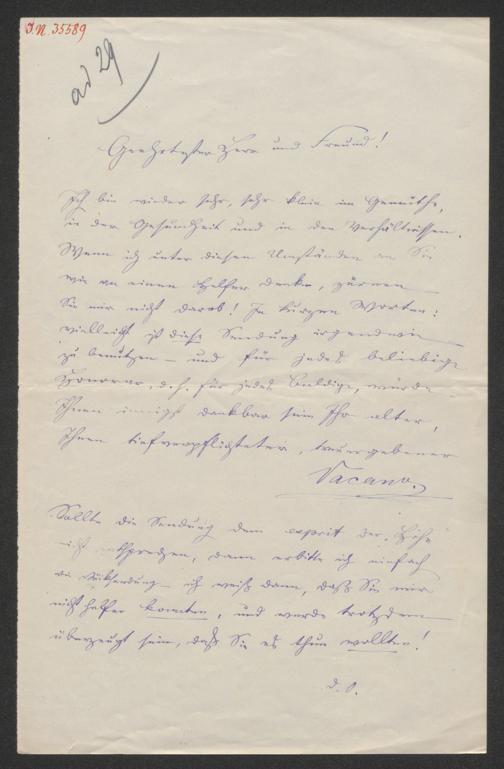 J.N. 35589
ad 29
Geehrtester Herr und Freund!
Ich bin wieder sehr, sehr klein im Gemüthe,
in der Gesundheit und in den Verhältnissen.
Wenn ich unter diesen Umständen an Sie
wie an einen Helfer denke, zürnen
Sie mir nicht darob! In kurzen Worten:
vielleicht ist diese Sendung irgendwie
zu benützen – und für jedes beliebige
Honorar, d.h. für jedes baldige, würde
Ihnen innigst dankbar sein Ihr alter,
Ihnen tiefverpflichteter, treuergebener
Vacano.
Sollte die Sendung dem esprit der
nicht entsprechen, dann erbitte ich einfach
die Rücksendung – ich weiß dann, daß Sie mir
nicht helfen konnten, und werde trotzdem
überzeugt sein, daß Sie es thun wollten!
d. O.